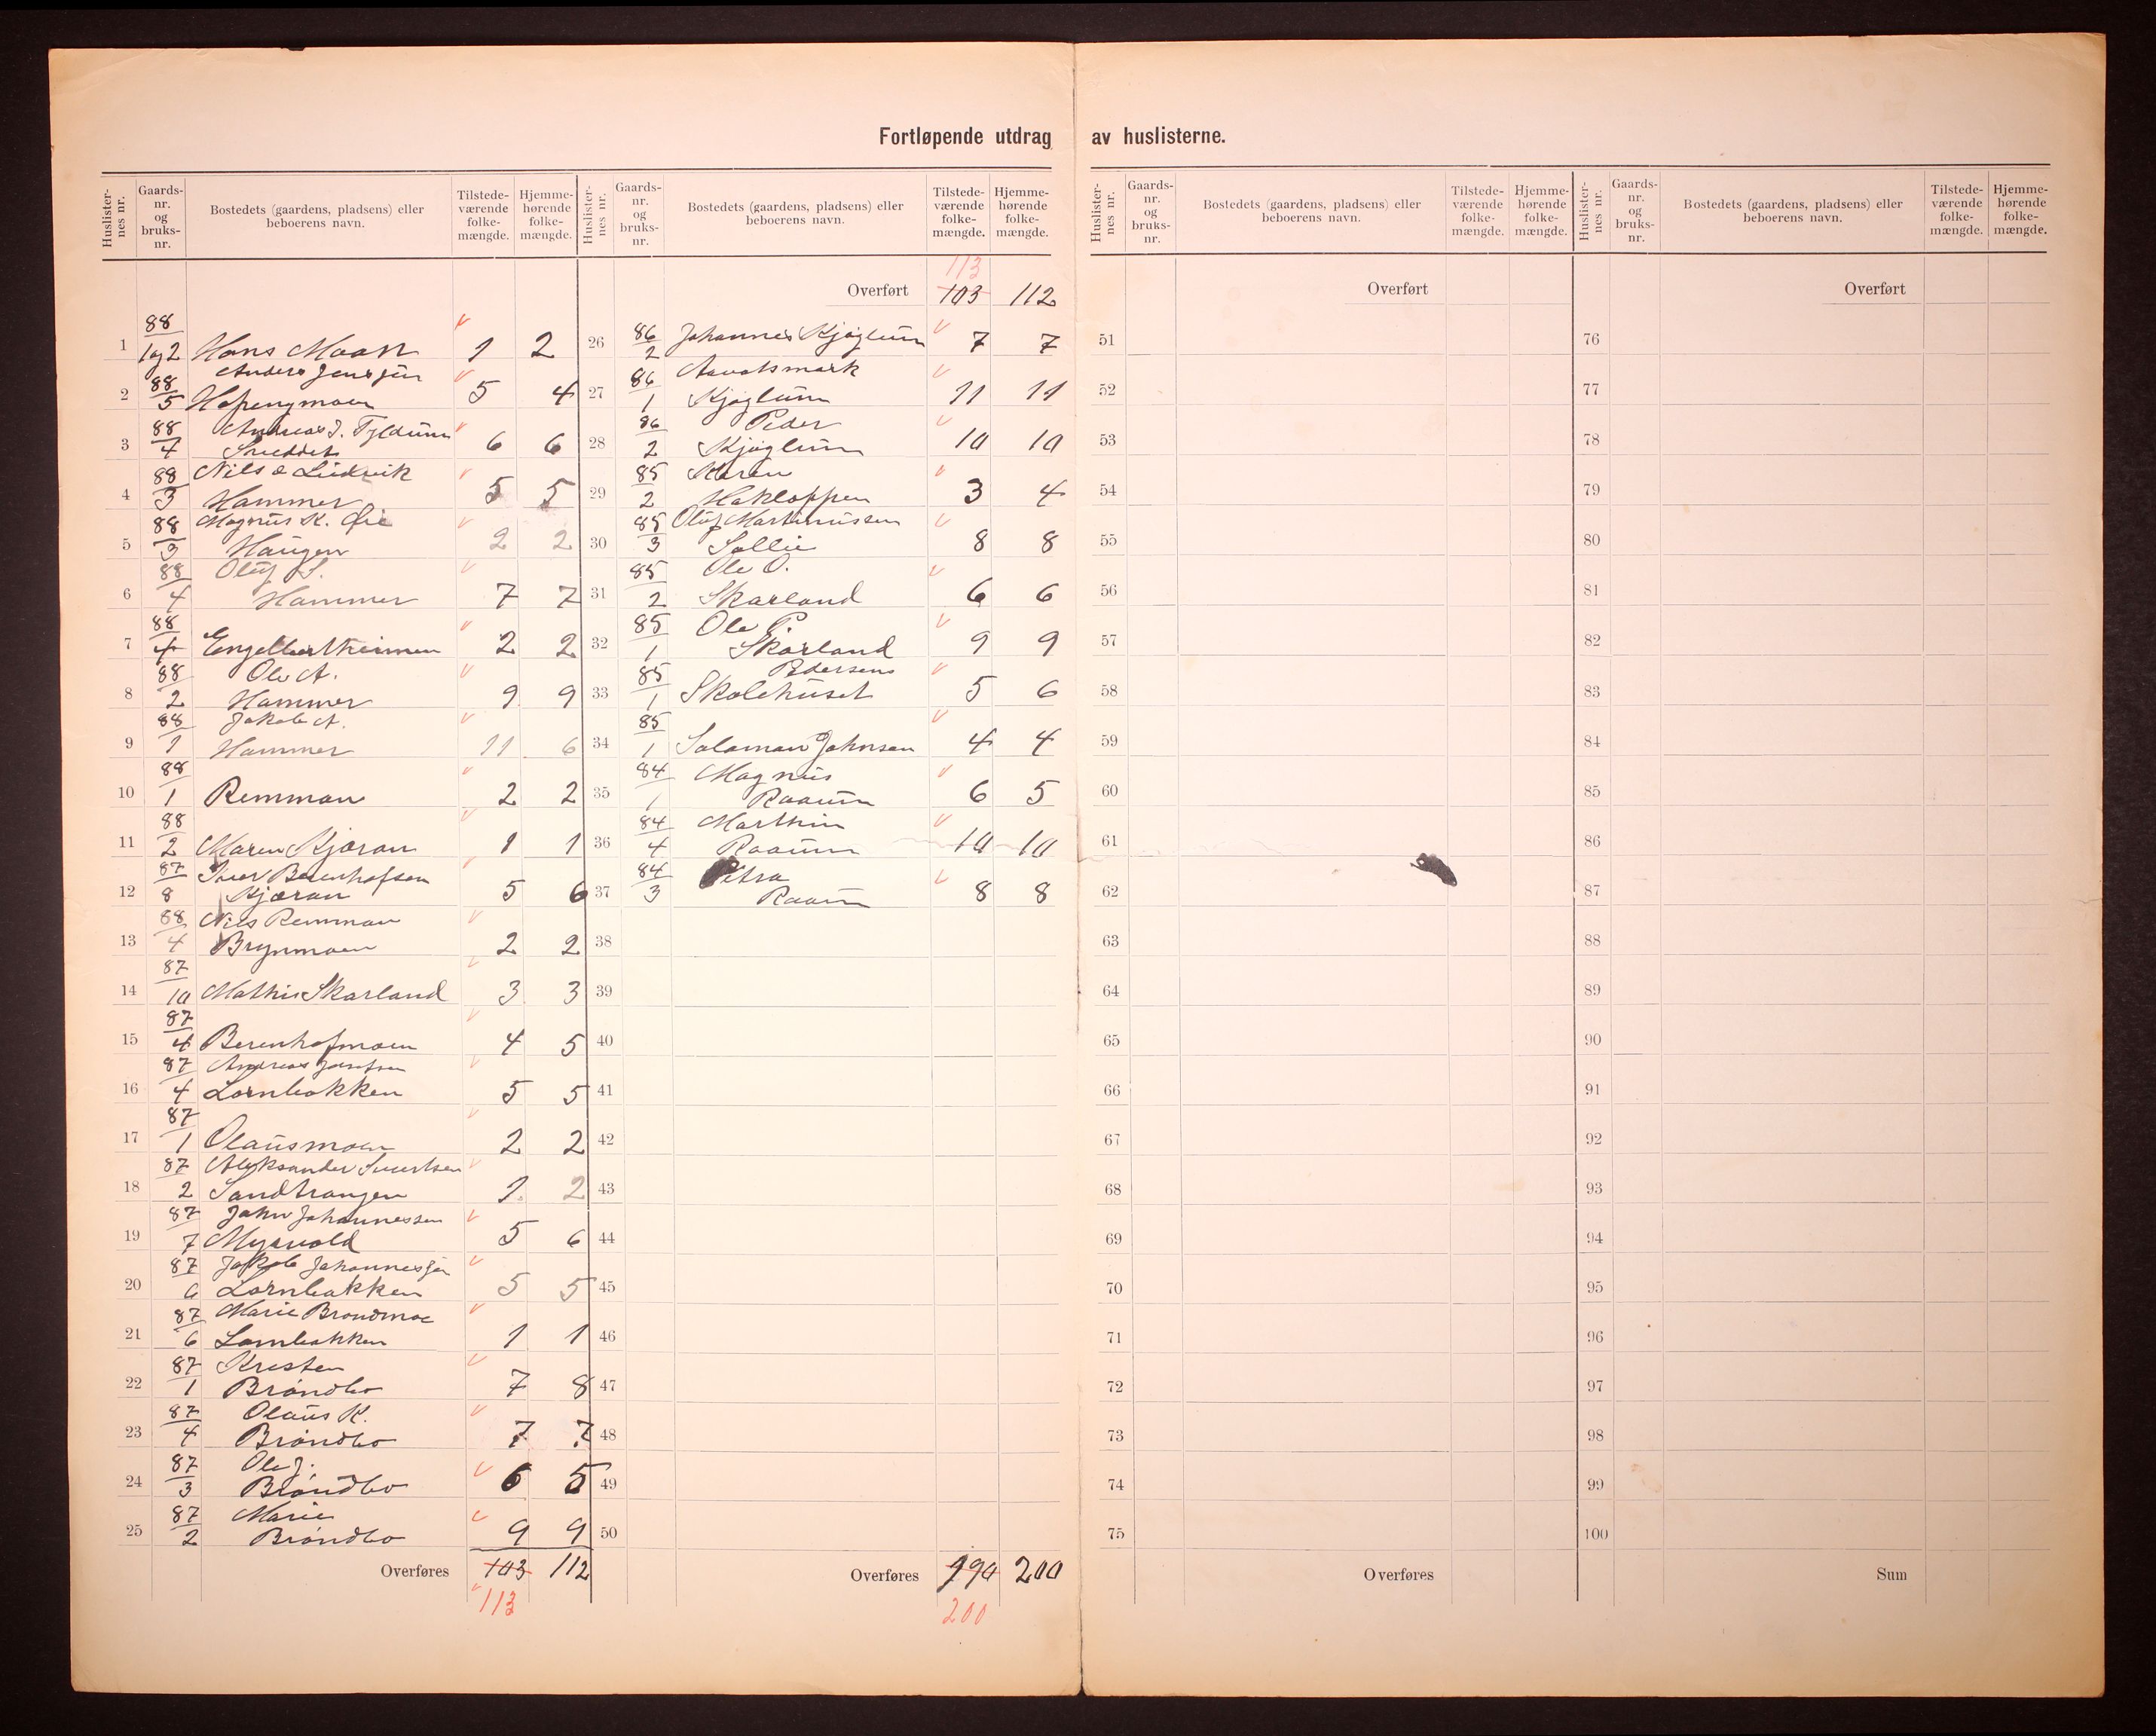 Fortløpende utdrag av huslisterne.
Huslister-nes nr. Gaards-nr. og bruks-nr. Bostedets (gaardens, pladsens) eller beboerens navn. Tilstede-værende folke-mængde. Hjemme-hørende folke-mængde.
1 88/1og2 Hans Moan 1 2
2 88/5 Anders Jenssen Hopengmoen 5 4
3 88/4 Andreas J. Tyldum 6 6
4 88/3 Nils & Ludvik Hammer 5 5
5 88/3 Magnus K. Øie Haugen 2 2
6 88/4 Oluf S. Hammer 7 7
7 88/4 Engelbertheimen 2 2
8 88/2 Ole A. Hammer 9 9
9 88/1 Jakob A. Hammer 11 6
10 88/1 Remman 2 2
11 88/2 Maren Kjæran 1 1
12 87/8 Iver Berenhofsen Kjæran 5 6
13 88/4 Nils Remman Brynmoen 2 2
14 87/10 Mathis Skarland 3 3
15 87/4 Berenhofmoen 4 5
16 87/4 Andreas Josefsen Lornbakken 5 5
17 87/1 Olausmoen 2 2
18 87/2 Aleksander Sivertsen Sandtrangen 1 2
19 87/7 John Johannessen Myrvold 5 6
20 87/6 Jakob Johannessen Lornbakken 5 5
21 87/6 Marie Brondmoe Lornbakken 1 1
22 87/1 Kristen Bröndbo 7 8
23 87/4 Olaus K. Bröndbo 7 7
24 87/3 Ole J. Bröndbo 6 5
25 87/2 Marie Bröndbo 9 9
Overføres 103 112
113
Huslister-nes nr. Gaards-nr. og bruks-nr. Bostedets (gaardens, pladsens) eller beboerens navn. Tilstede-værende folke-mængde. Hjemme-hørende folke-mængde.
113
Overført 103 112
26 86/2 Johannes Kjøglum 7 7
27 86/1 Aavatsmark Kjøglum 11 11
28 86/2 Peder Kjøglum 10 10
29 85/2 Karen Hakloppen 3 4
30 85/3 Oluf Martinussen Sollie 8 8
31 85/2 Ole O. Skarland 6 6
32 85/1 Ole P. Skarland 9 9
33 85/1 Pedersens Skolehuset 5 6
34 85/1 Salamon Johnsen 4 4
35 84/1 Magnus Raaum 6 5
36 84/4 Marthin Raaum 10 10
37 84/3 Petra Raaum 8 8
38
39
40
41
42
43
44
45
46
47
48
49
50
Overføres 190 200
200
Huslister-nes nr. Gaards-nr. og bruks-nr. Bostedets (gaardens, pladsens) eller beboerens navn. Tilstede-værende folke-mængde. Hjemme-hørende folke-mængde.
Overført
51
52
53
54
55
56
57
58
59
60
61
62
63
64
65
66
67
68
69
70
71
72
73
74
75
Overføres
Huslister-nes nr. Gaards-nr. og bruks-nr. Bostedets (gaardens, pladsens) eller beboerens navn. Tilstede-værende folke-mængde. Hjemme-hørende folke-mængde.
Overført
76
77
78
79
80
81
82
83
84
85
86
87
88
89
90
91
92
93
94
95
96
97
98
99
100
Sum